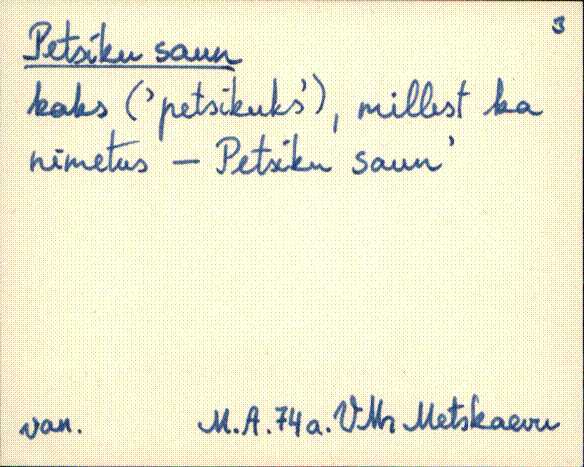 3
Petsiku saun
kaks ('petsikuks'), millest ka
nimetus — Petsiku saun'
van. M.A. 74 a. VMr Metskaevu